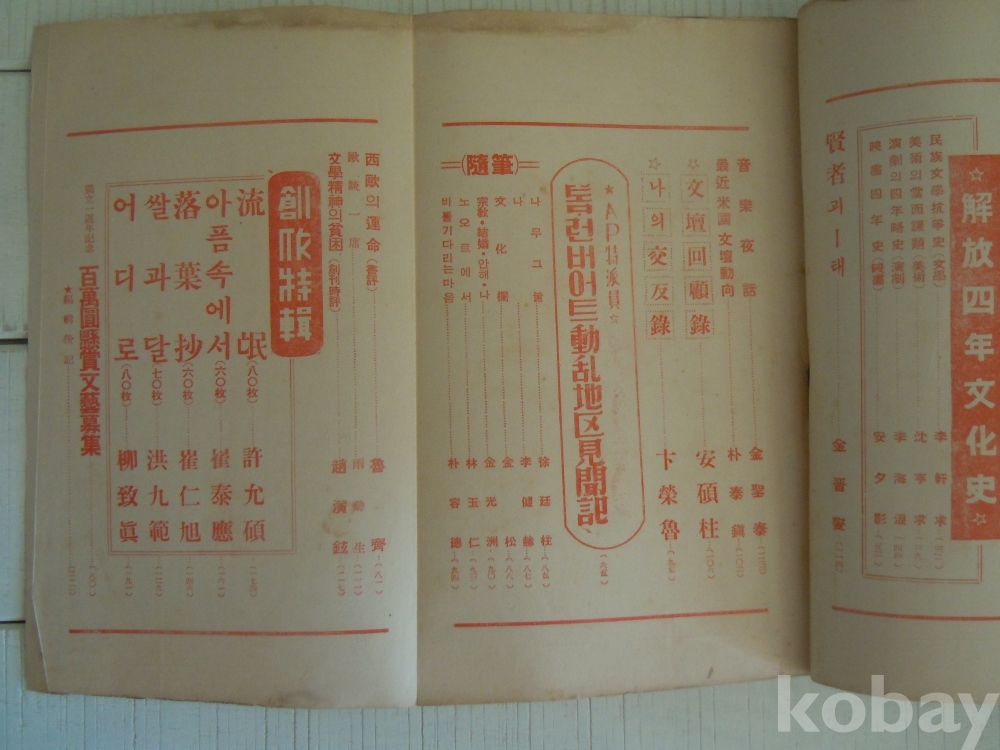 ☆解放四年文化史☆
民族文學抗爭史(文學) 李軒求
美術의當面課題(美術) 沈亨求
演劇의四年略史(演劇) 李海浪
映畵四年史(映畵) 安夕影
賢者괴ー태 金晋燮
音樂夜話 金聖泰
最近米國文壇動向 朴泰鎭
☆文壇回顧錄 安碩柱
☆나의交友錄 卞榮魯
★AP特派員☆
불럭런버어트動乱地区見聞記
(隨筆)
나무그늘 徐廷柱
나 李健
文化欄 金松
宗敎・結婚・안해・나 金光洲
노오트에서 林玉仁
비둘기기다리는마음 朴容德
西歐의運命(書評) 魯齊
歐談一席 雨 生
文學精神의貧困(創刊時評) 趙演鉉
創作特輯
流氓(八〇枚) 許允碩
아픔속에서(六〇枚) 崔泰應
落葉抄(六〇枚) 崔仁旭
쌀과달(七〇枚) 洪九範
어디로(八〇枚) 柳致眞
獨立一週年記念
百萬圓懸賞文藝募集
★編輯後記
kobay